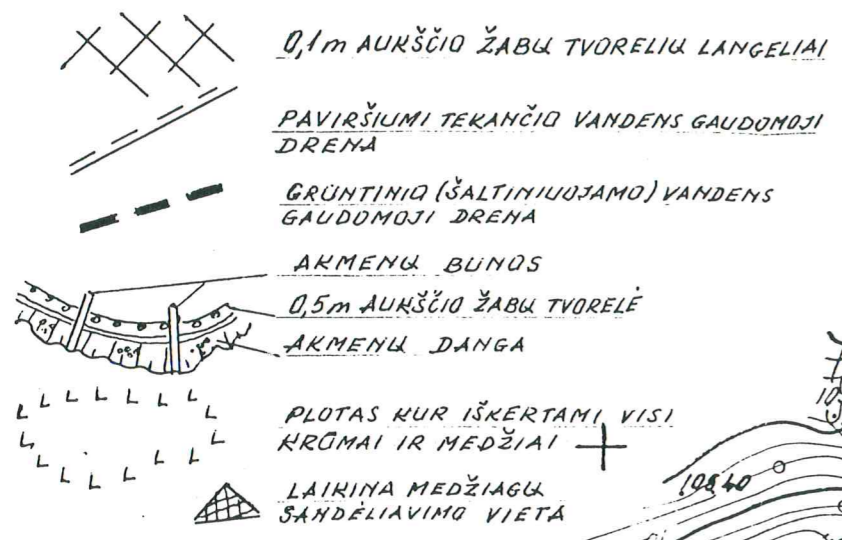 0,1m AUKŠČIO ŽABŲ TVORELIŲ LANGELIAI
PAVIRŠIUMI TEKANČIO VANDENS GAUDOMOJI
DRENA
GRUNTINIO (ŠALTINIUOJAMO) VANDENS
GAUDOMOJI DRENA
AKMENŲ BUNOS
0,5m AUKŠČIO ŽABŲ TVORELĖ
AKMENŲ DANGA
PLOTAS KUR IŠKERTAMI VISI
KRŪMAI IR MEDŽIAI
LAIKINA MEDŽIAGŲ
SANDĖLIAVIMO VIETA